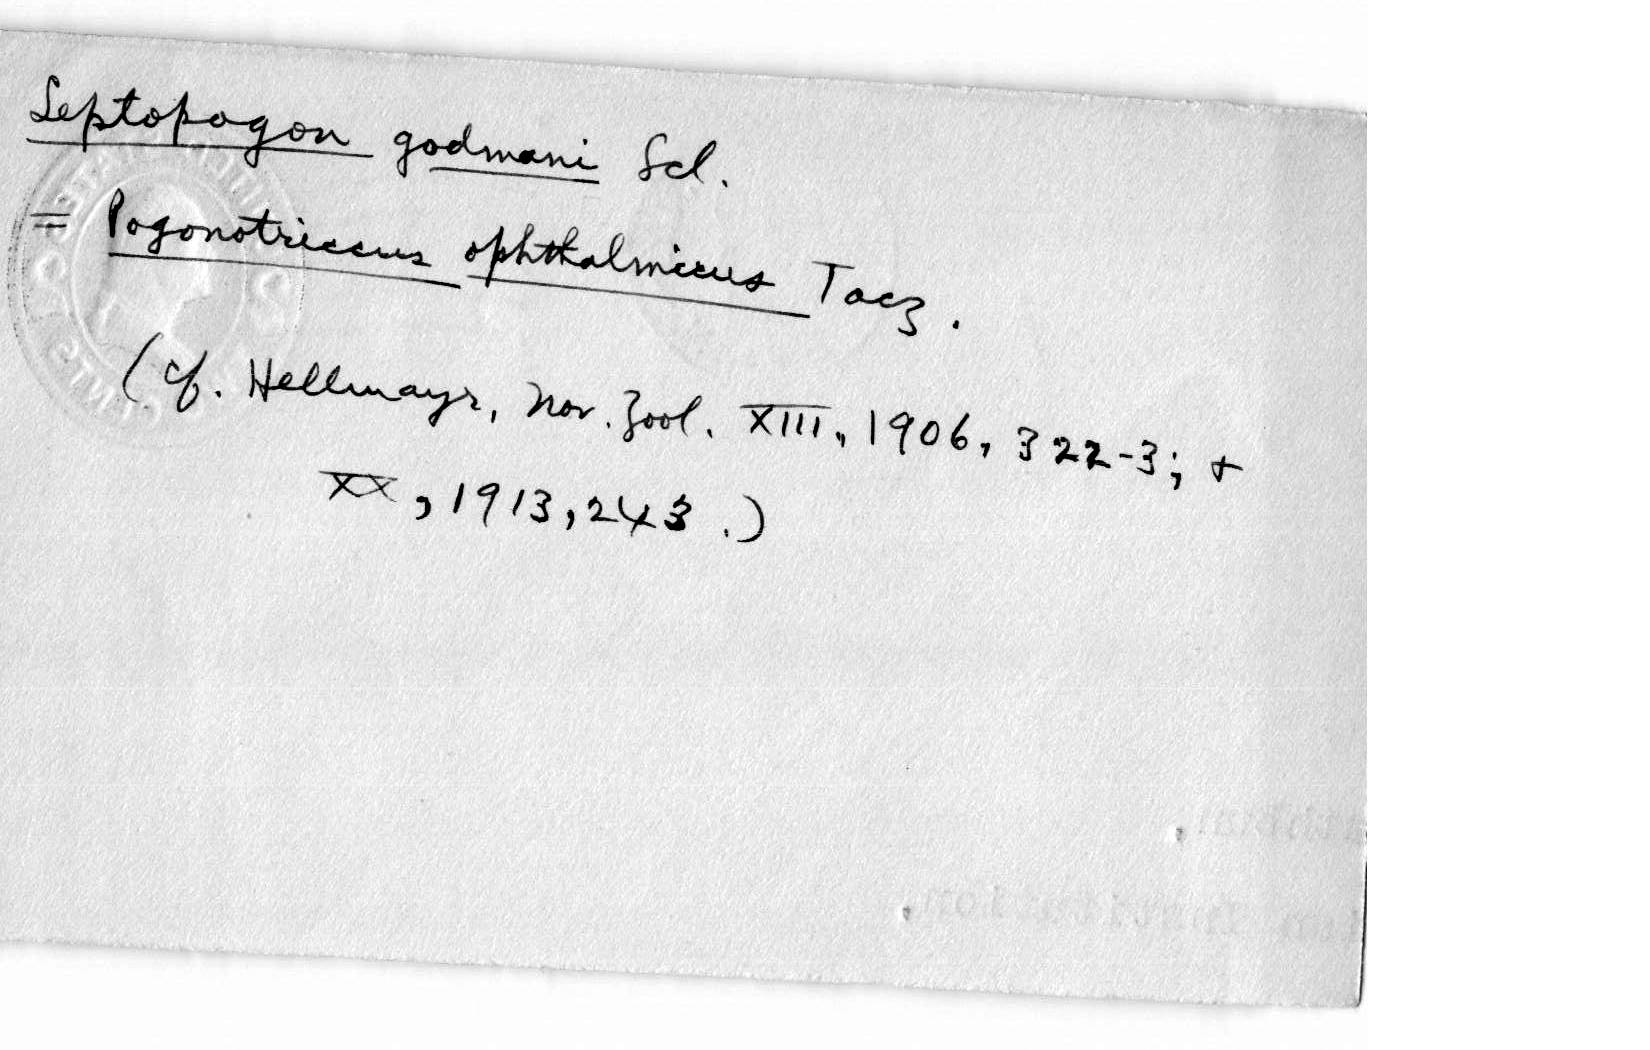 Leptopogon godmani Scl.
= Pogonotriccus ophthalmicus Tacz.
(cf. Hellmayr, Nov. Zool. XIII, 1906, 322-3; +
XX, 1913, 243.)